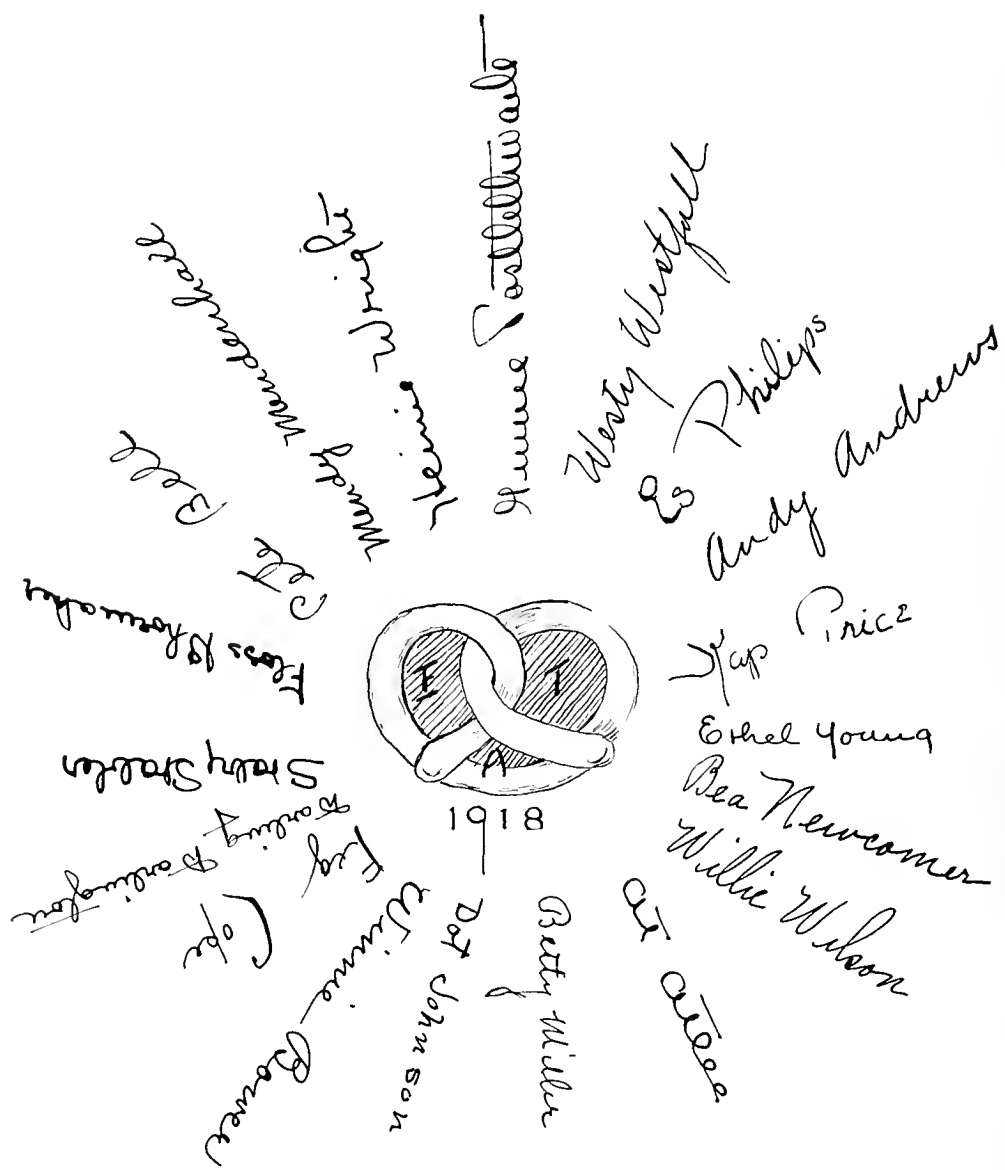 Postlethwaite
Westy Westfall
Es Philips
Andy Andrews
Kap Price
Ethel Young
Bea Newcomer
Willie Wilson
Betty Miller
Dot Johnson
Winnie Bower
Peg Cope
Darling Darlington
Stabry Stabler
Floss Shoemaker
Pete Bell
Mendy Mendenhall
Wright
I T
A
1918